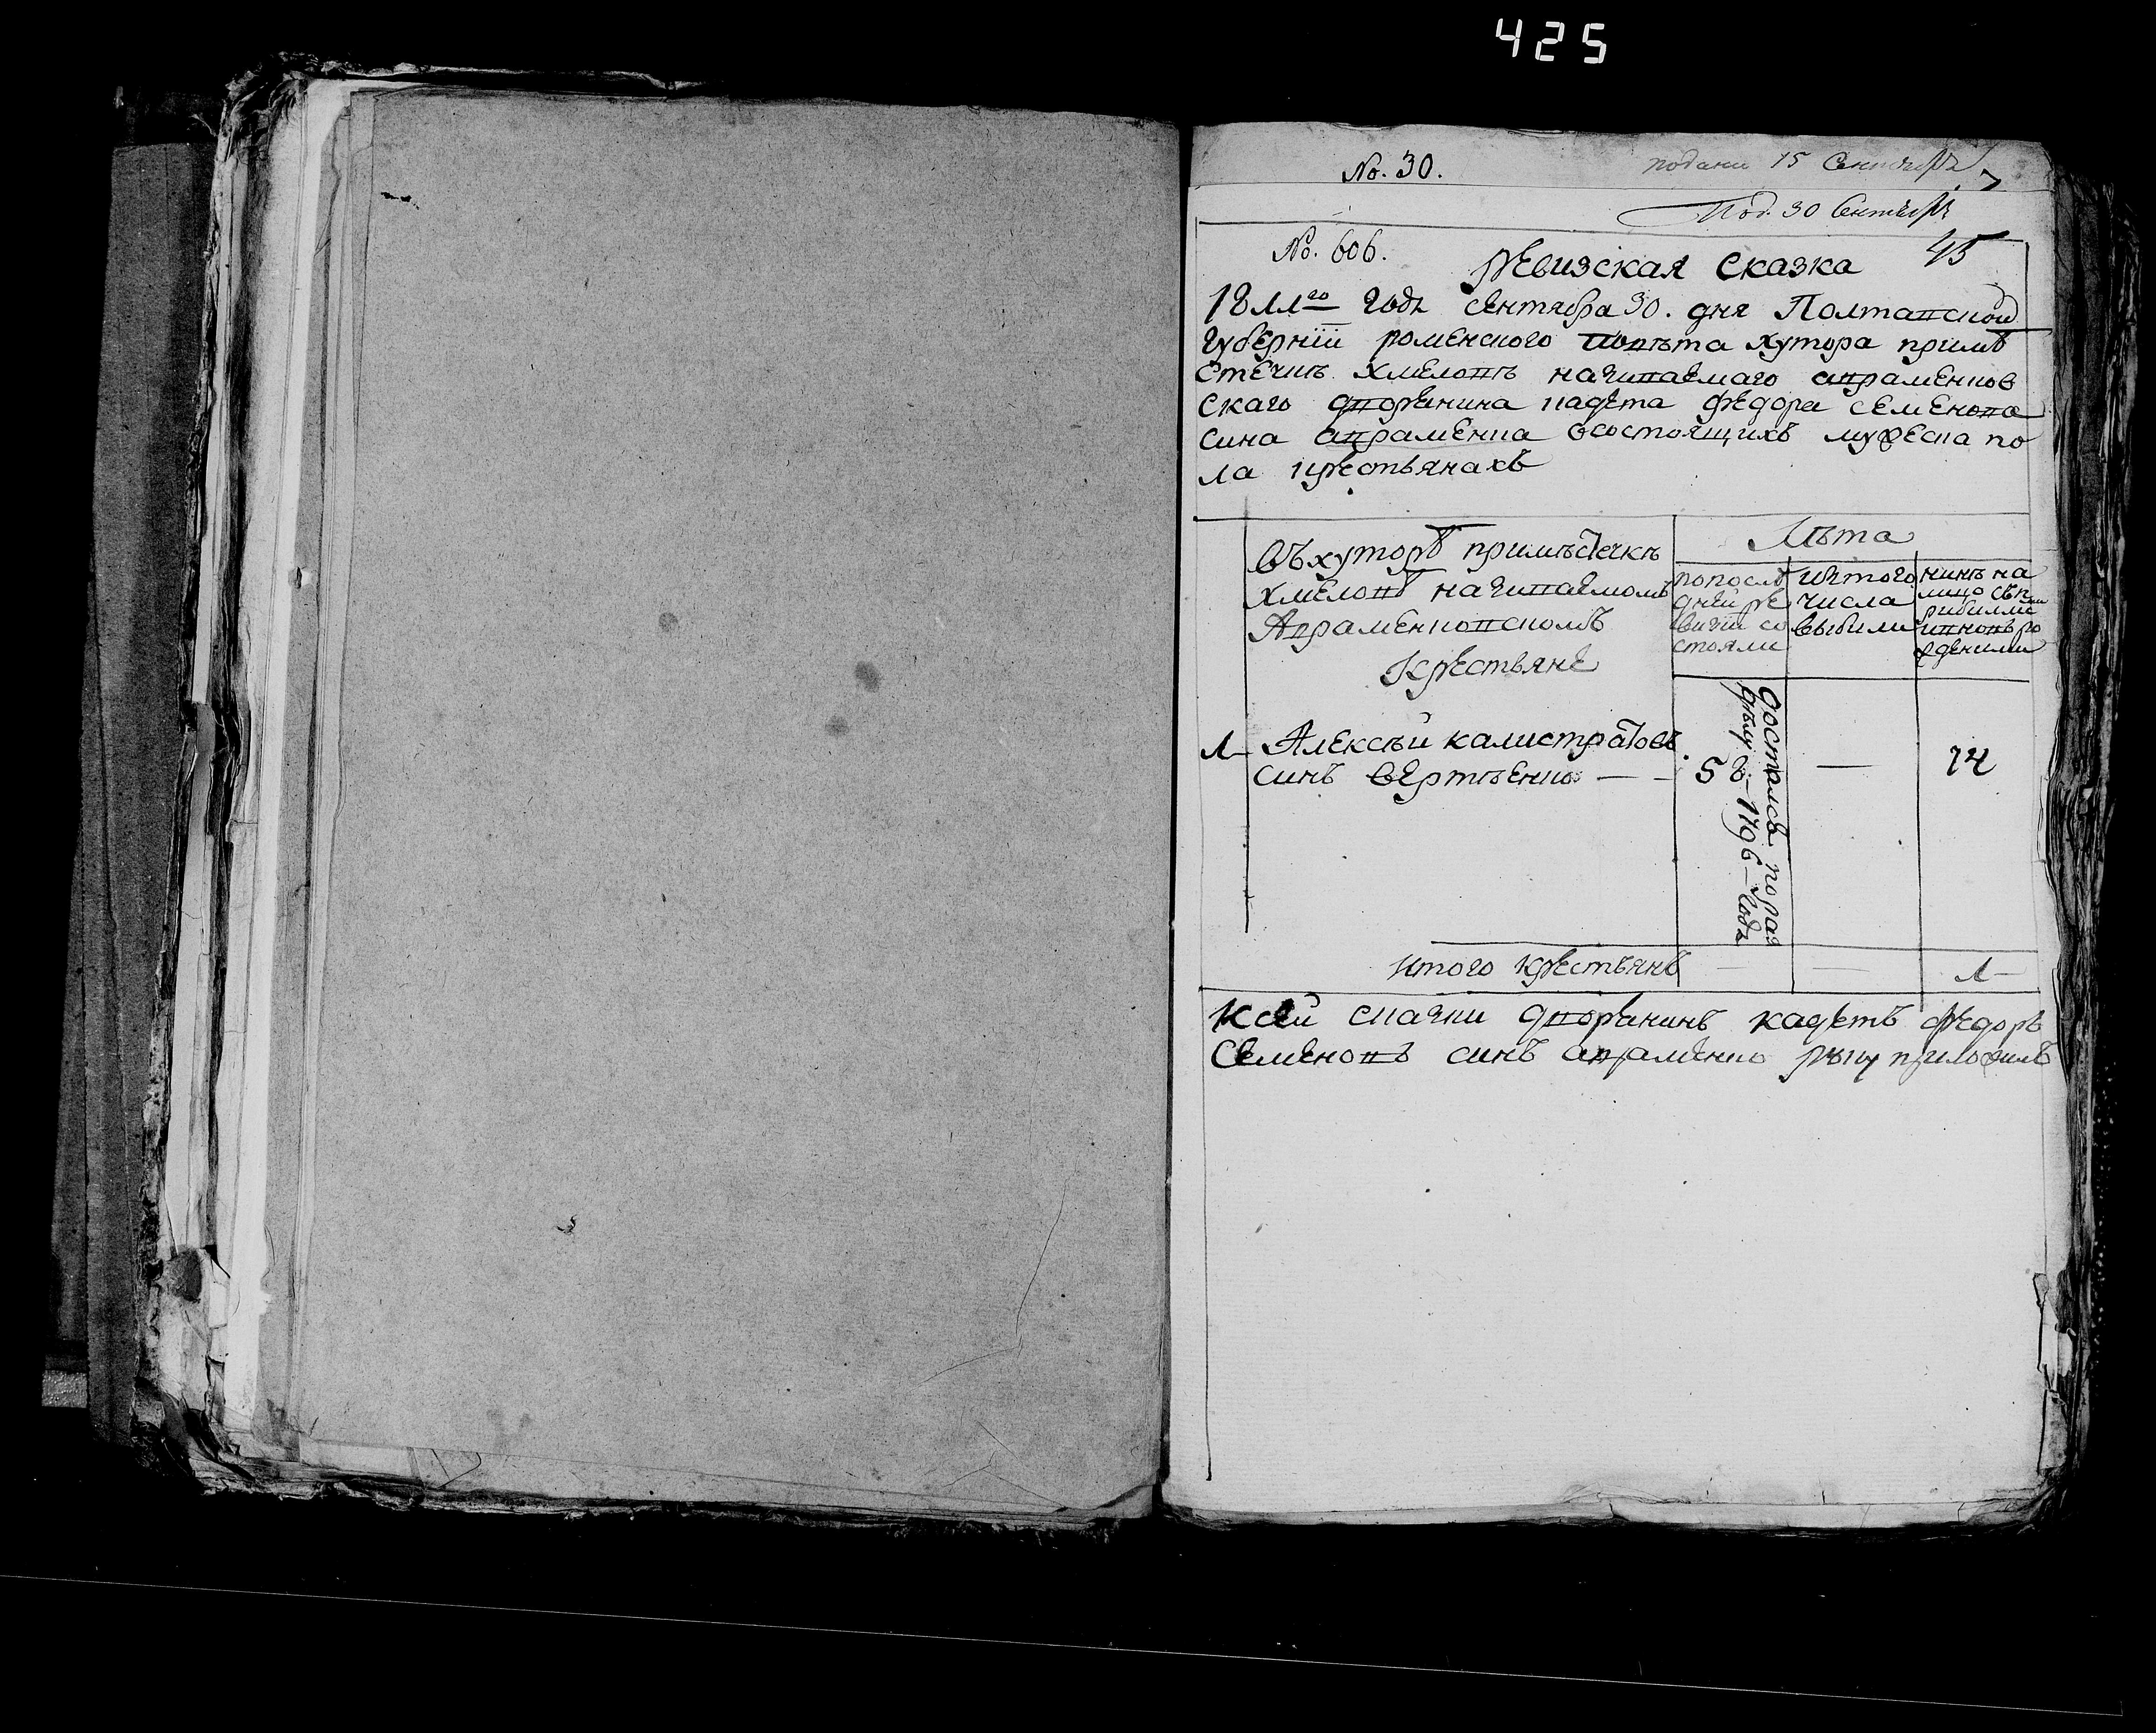 425
No. 30.
подани 15 Сентебрѣ
Под. 30 Сентебрѣ
No. 606.
45
ревизская сказка
1811го года сентября 30. дня Полтавской
губерніи роменского повѣта хутора примѣ
стечкѣ хмеловѣ називаемаго авраменков
скаго дворянина кадета федора семенова
сина авраменка осостоящихъ мужеска по
ла крестьянахъ
Лѣта
Въ хуторѣ примѣстечкѣ
хмеловѣ називаемомъ
Авраменковскомъ
Крестьяне
попослѣ
дней ре
визіи со
стояли
изтого
числа
выбили
нинѣ на
лицо сък
рибилими
ивновъ ро
жденими
1 Алексѣй калистратовъ
синъ Вертѣенко
58
достался пораз
делу 1796 года
—
74
Итого крестьянъ — — 1
Ксей сказки дворянинъ кадетъ федоръ
Семеновъ синъ авраменко руку приложилъ